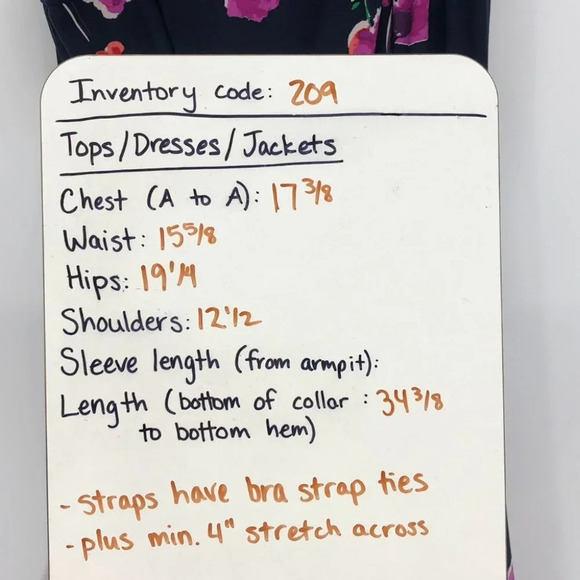 Inventory code: 209
Tops/Dresses/Jackets
Chest (A to A): 17 3/8
Waist: 15 5/8
Hips: 19 1/4
Shoulders: 12 1/2
Sleeve length (from armpit):
Length (bottom of collar : 34 3/8
to bottom hem)
- straps have bra strap ties
- plus min. 4" stretch across